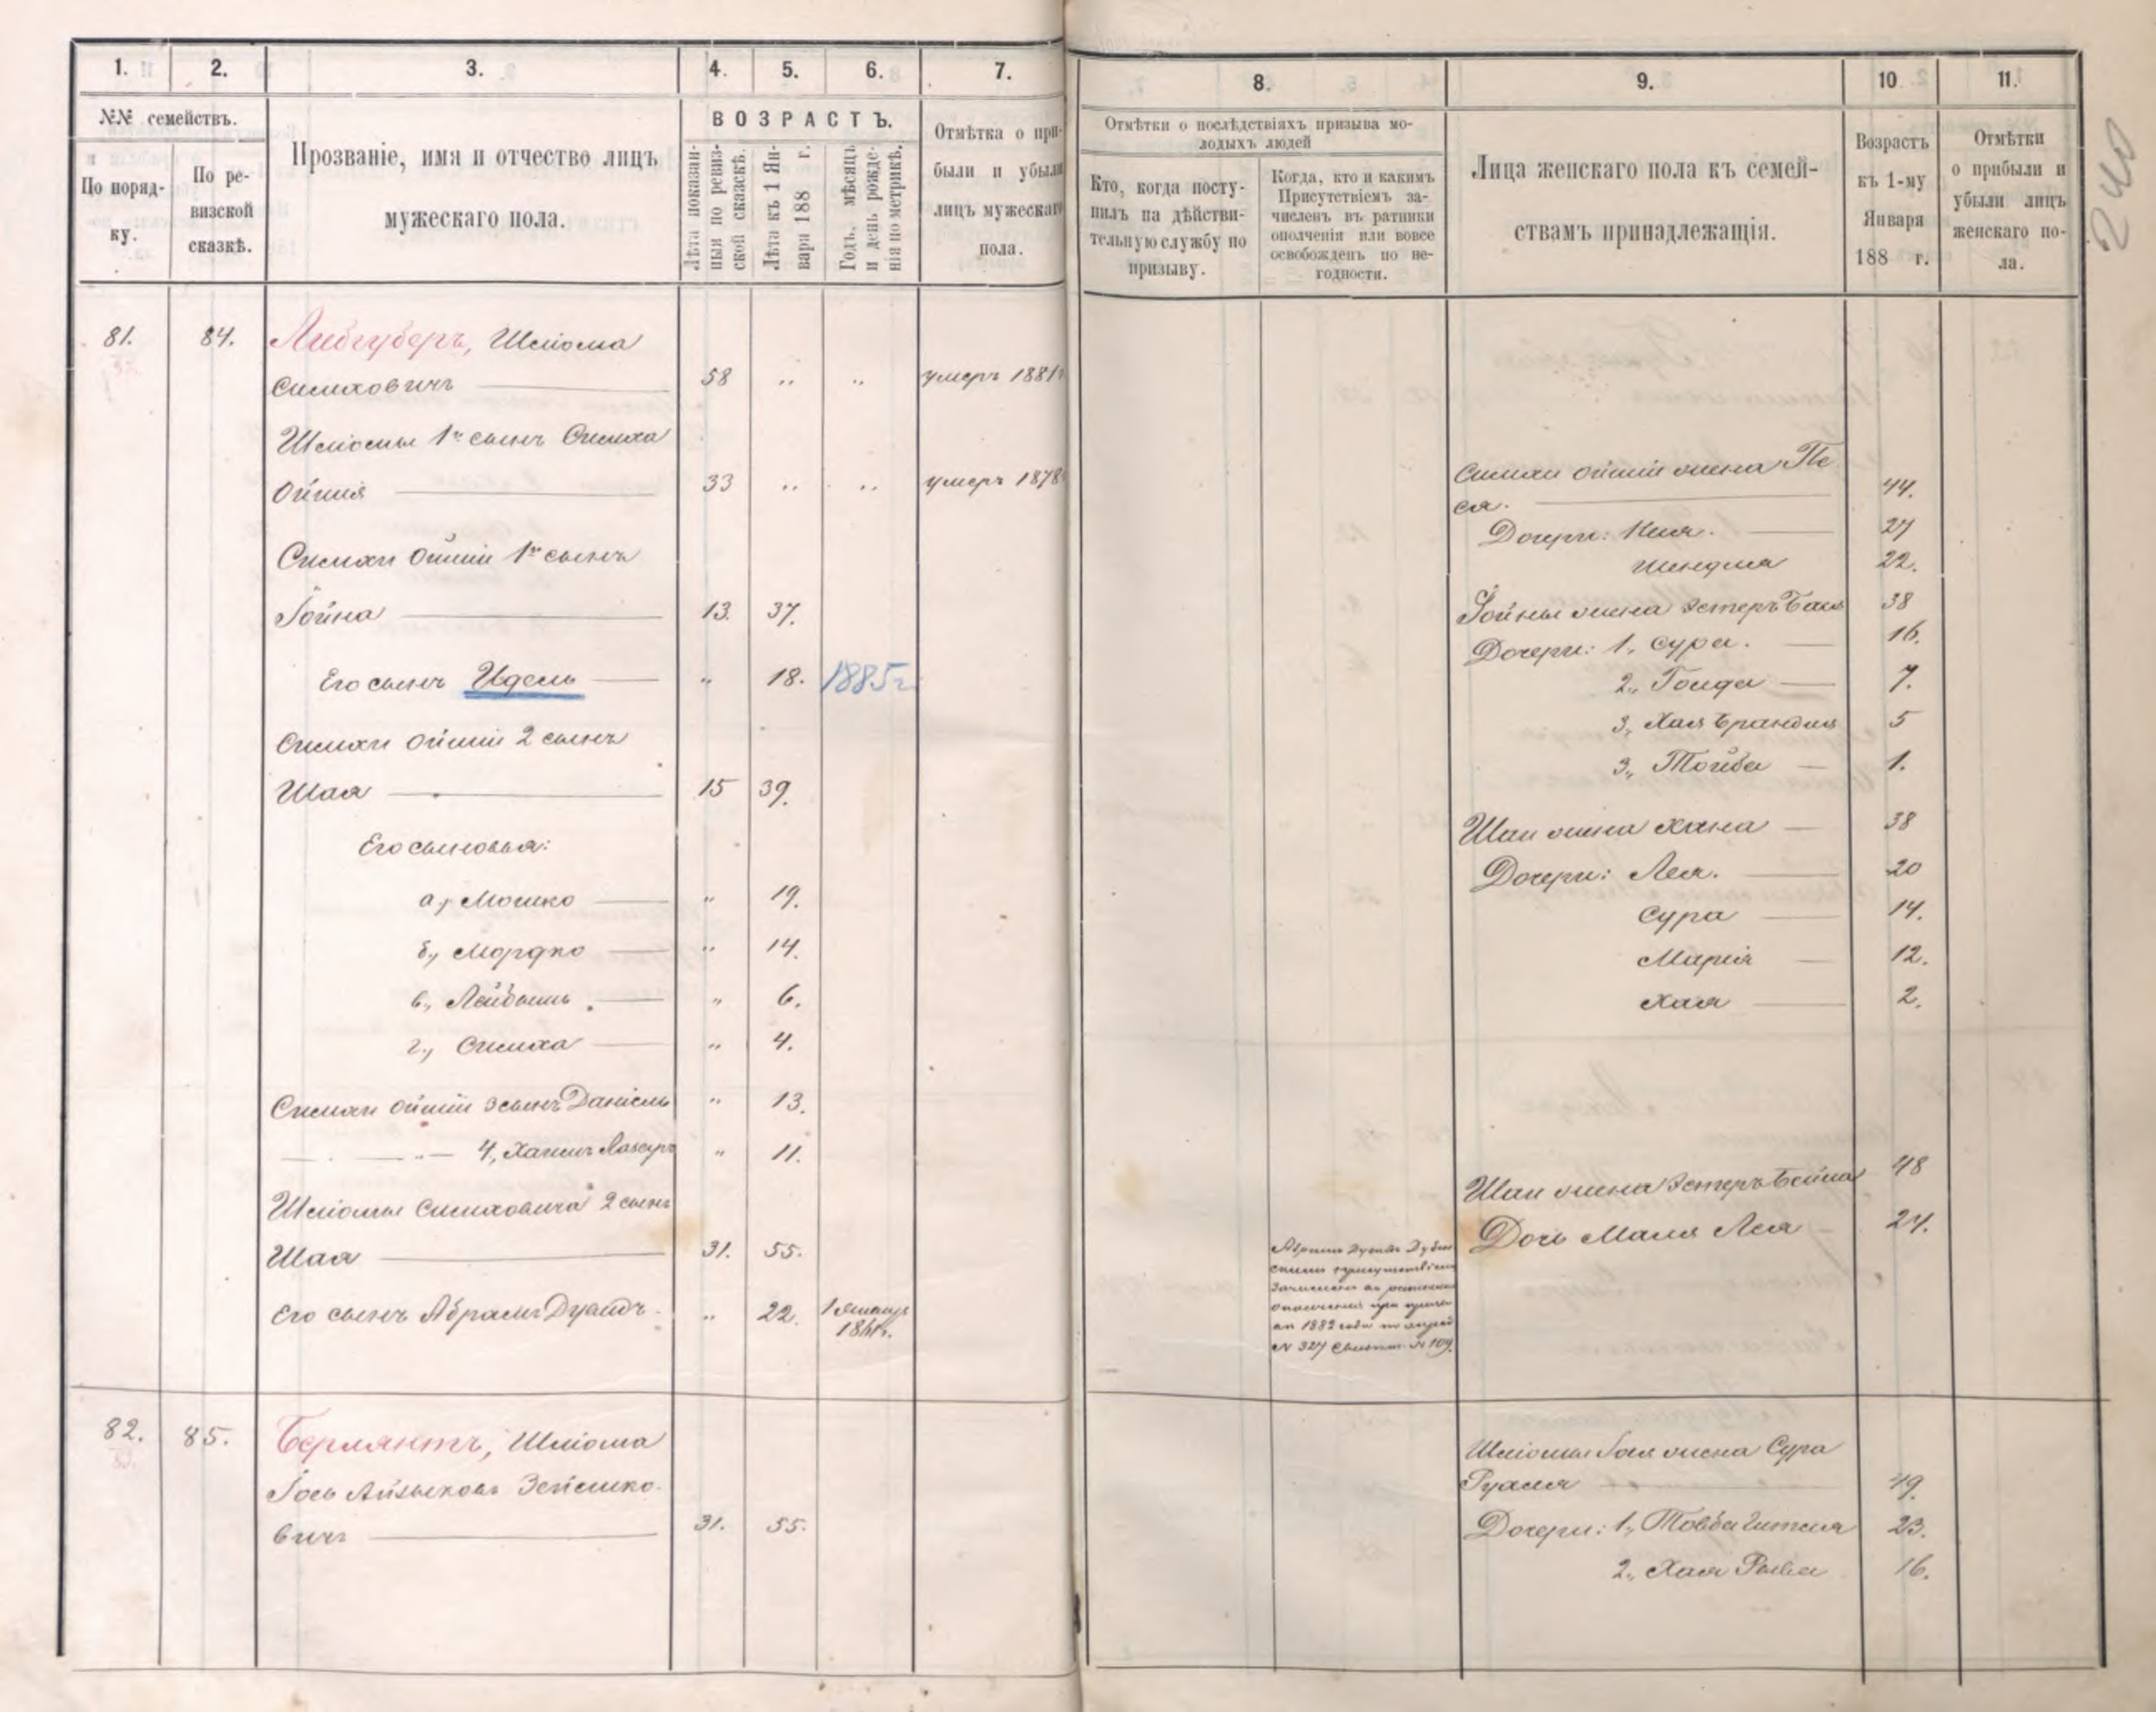 1.
2.
3.
4.
5.
6.
7.
№№ семействъ.
По поряд-
ку.
По ре-
визской
сказкѣ.
Прозваніе, имя и отчество лицъ
мужескаго пола.
ВОЗРАСТЪ.
Лѣта показан-
ныя по ревиз-
ской сказкѣ.
Лѣта къ 1 Ян-
варя 188 г.
Годъ, мѣсяцъ
и день рожде-
нія по метрикѣ.
Отмѣтка о при-
были и убыли
лицъ мужескаго
пола.
81.
84.
Либгуберъ, Шліома
Симховичъ
58 „ „ умеръ 1881г
Шліомы 1й сынъ Симха
Ойшія
33 „ „ умеръ 1878
Симхи Ойшіи 1й сынъ
Іойна
13. 37.
Его сынъ Идель
„ 18. 1885г.
Симхи Ойшіи 2 сынъ
Шая
15 39.
Его сыновья:
а, Мошко „ 19.
б, Мордко „ 14.
в, Лейбишь „ 6.
г, Симха „ 4.
Симхи Ойшіи 3 сынъ Даніель „ 13.
4, Хаимъ Лазеръ „ 11.
Шліомы Симховича 2 сынъ
Шая
31. 55.
Его сынъ Абрамъ Дувидъ „ 22. 1 Января
1861г.
82.
85.
Берлянтъ, Шліома
Іось Айзыковъ Зейлико-
вичъ
31. 55.
8.
9.
10
11.
Отмѣтки о послѣдствіяхъ призыва мо-
лодыхъ людей
Кто, когда посту-
пилъ на дѣйстви-
тельную службу по
призыву.
Когда, кто и какимъ
Присутствіемъ за-
численъ въ ратники
ополченія или вовсе
освобожденъ по не-
годности.
Лица женскаго пола къ семей-
ствамъ принадлежащія.
Возрастъ
къ 1-му
Января
188 г.
Отмѣтки
о прибыли и
убыли лицъ
женскаго по-
ла.
Симхи Ойшіи жена Пе
ся. 44.
Дочери: 27
Шендля 22.
Іойны жена Эстеръ Бася 38
Дочери: 1, Сура. 16.
2, Голда 7.
3, Хая Брандля 5
3, Тойба 1.
Шаи жена Хана 38
Дочери: Лея. 20
Сура 14.
Марія 12.
Хая 2.
Шаи жена Эстеръ Бейла 48
Дочь Маля Лея 24.
Абрамъ Дувидъ Дубен
скимъ присутствіемъ
зачисленъ въ ратники
ополченія при призы
вѣ 1882 года по жереб
№ 327 Свидѣт. № 109.
Шліомы Іося жена Сура
Рухля 49.
Дочери: 1, Товба Гитля 23.
2, Хая Рыва 16.